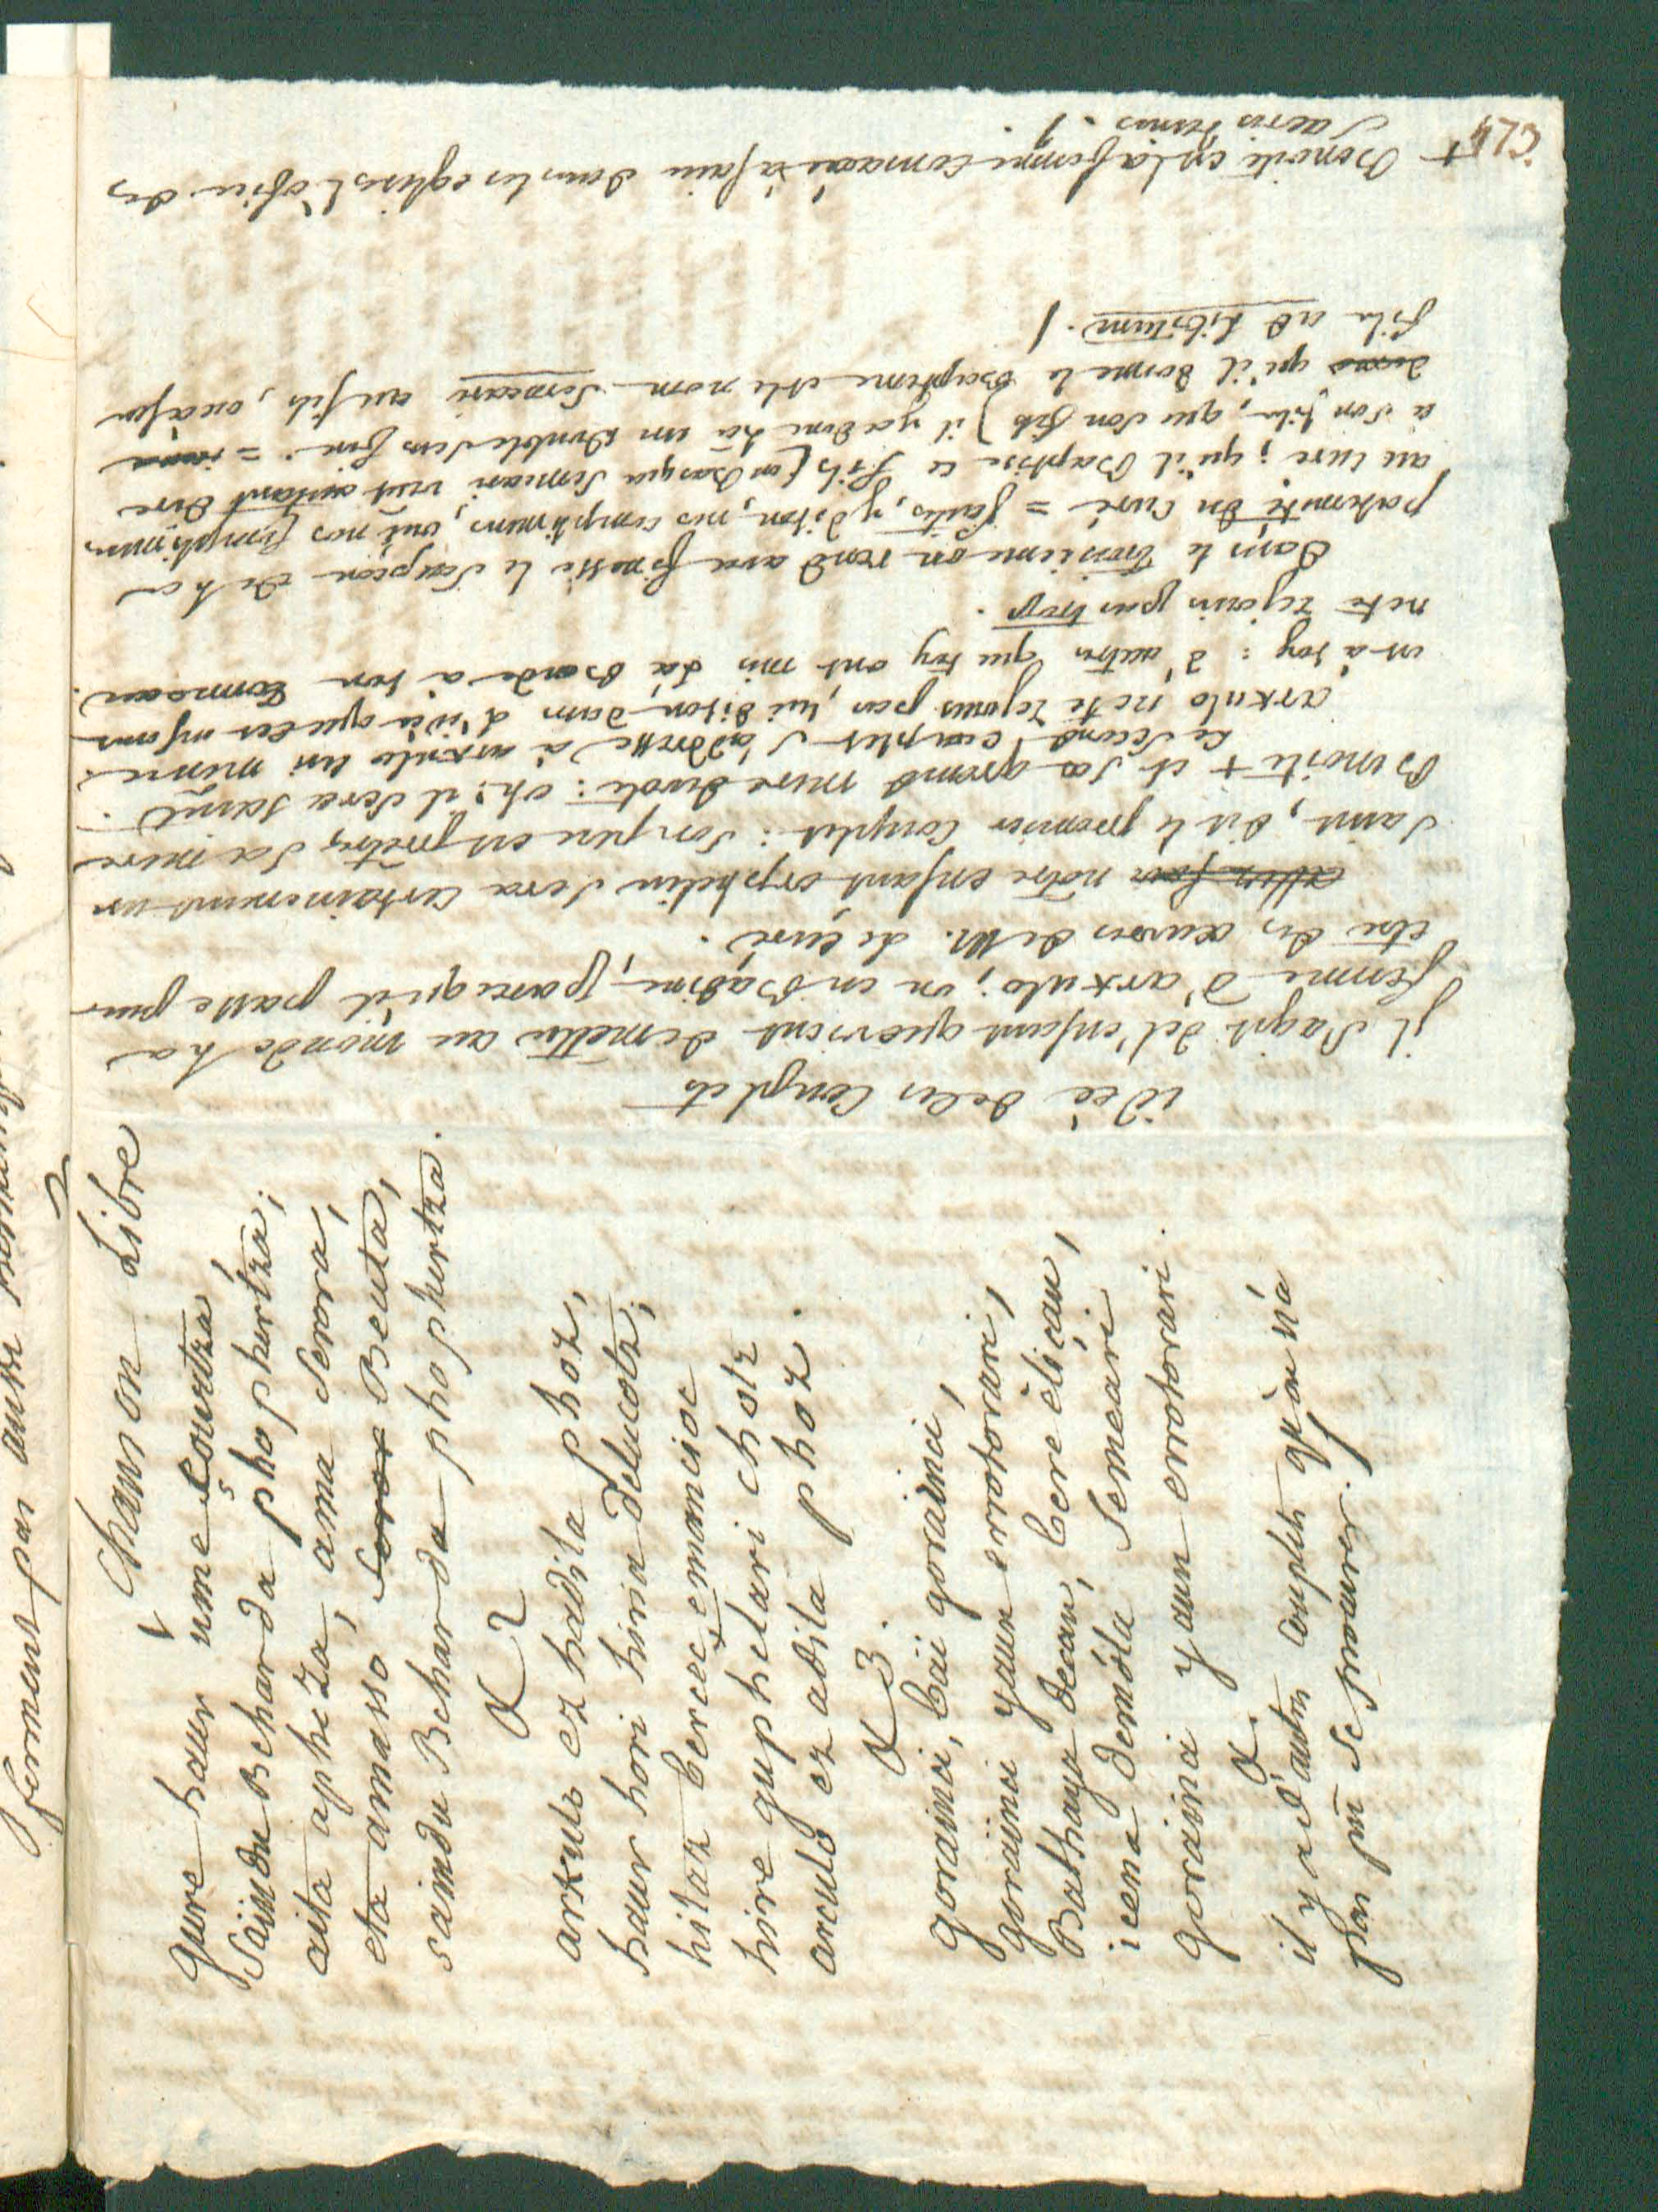 Chanson Libre
gure haur ume çourtza
Saindu Beharda phophertza;
aita apheza, ama Serora,
eta amasso Beata,
saindu Beharda phophertza.
2
arkulo ez hadila phoz,
haur hori hiria delucotz;
hitaz berce emanicoc
hire guphelari chotz
arculo ez adila phoz.
3.
goraiinci, baii gorainci,
goraiinci yaun erretorari,
Bathaya deçan, bere eliçan,
icena demola Semeari
goraiinci yaun erretorari.
il y a d'autres couplets qu'on n'a
pas pû se procurer.
idée de ces Couplets
il s'agit de l'enfant que vient de mettre au monde la
femme d'arkulo; on en Badine, parce qu'il passe pour
etre des œuvres de M. le curé.
notre enfant orphelin sera certainement un
saint, dit le premier Couplet: son pere est prêtre, sa mere
Benoite + et sa grand mere devote: oh! il sera saint.
Le second couplet s'addresse à arkulo lui même.
arkulo ne te rejouis pas, lui dit on dans l'idée que cet enfant
est à toy: d'autres que toy ont mis la bonde à ton tonneau.
ne te rejouis pas trop.
Dans le troisieme on rend avec finesse le soupçon de la
paternité du Curé = faites, y dit on, nos complimens, oui nos complimens
au curé; qu'il Baptise ce fils (en Basque Semeari veut autant dire
à son fils, que son fils) il y a donc là un double sens fin. =
qu'il donne le Baptême et le nom Semeari au fils, ou à son
fils ad Libitum.
+ Benoite est la femme consacrée à faire dans les eglises l'ofice des
Sacristains.
fermant par aussi